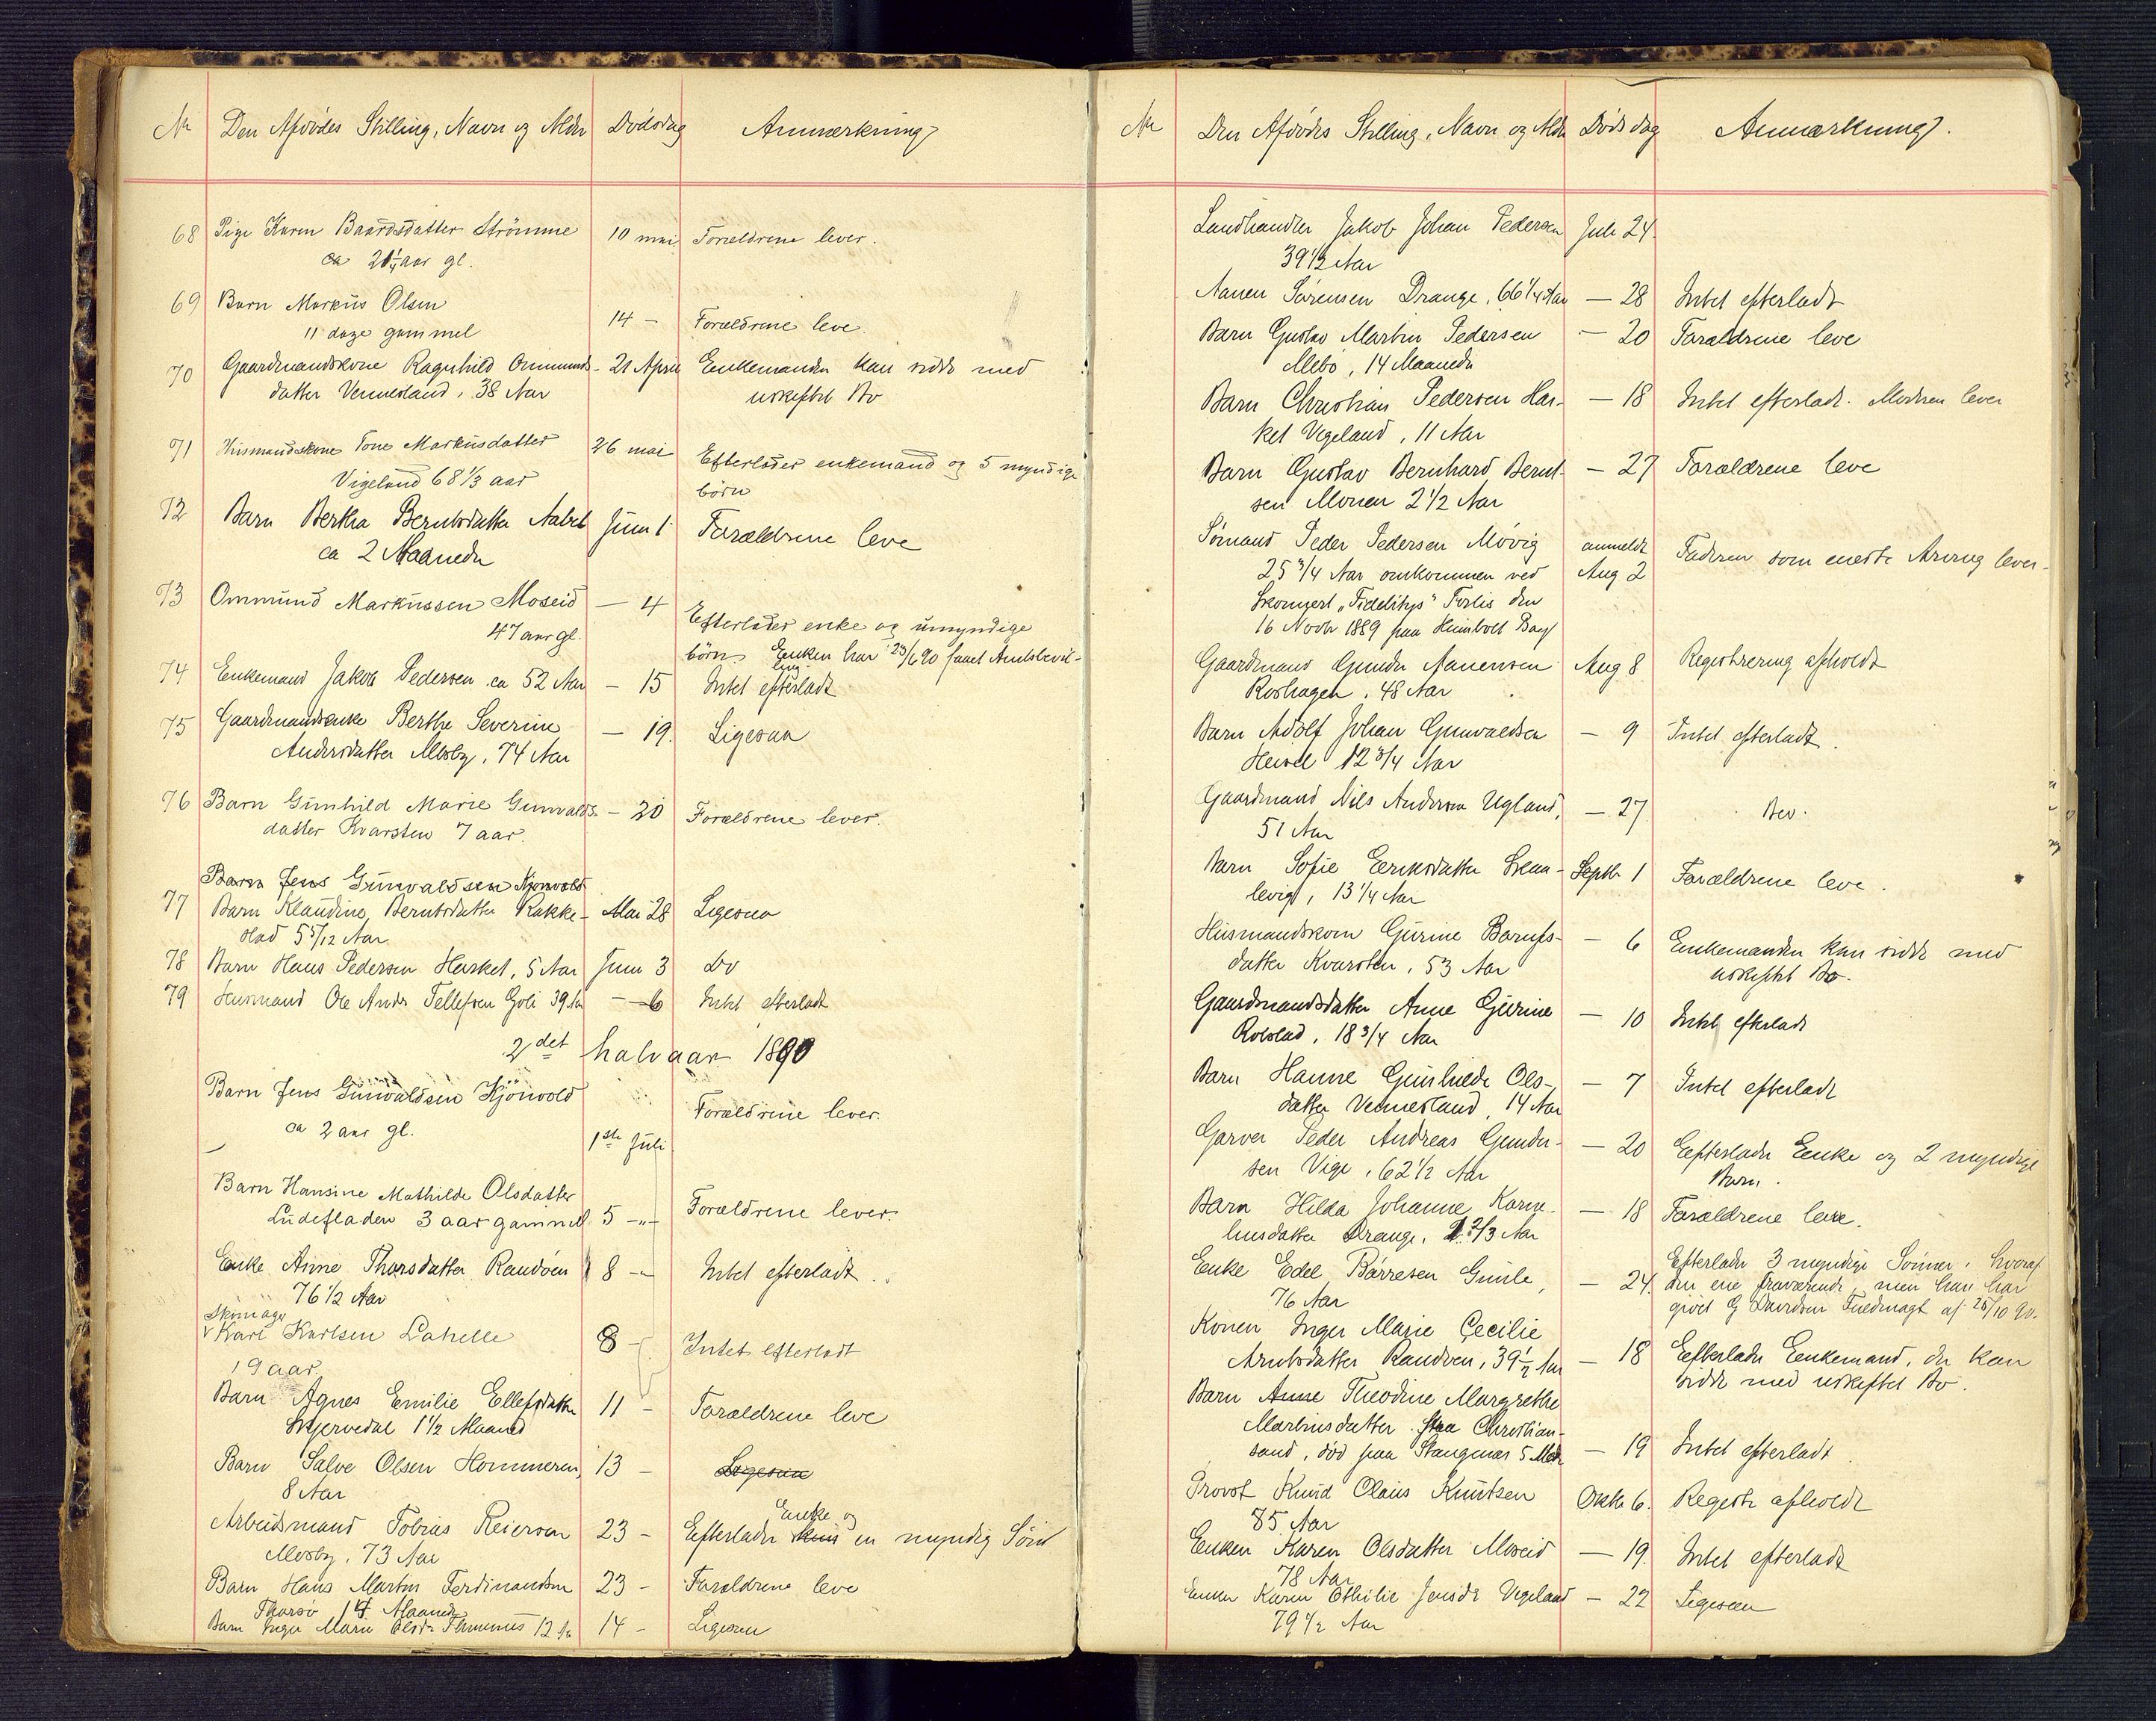 Nr Den Afdødes Stilling, Navn og Alder Dødsdag Anmærkning
68 Pige Karen Baardsdatter Strömme 10 mai Forældrene lever.
ca 21 1/4 aar gl.
69 Barn Markus Olsen
11 dage gammel 14 - Forældrene leve.
70 Gaardmandskone Ragnhild Ommunds- 21 April Enkemanden kan sidde med
datter Vennesland, 38 Aar uskiftet Bo
71 Husmandskone Tone Markusdatter 26 mai Efterlader enkemand og 5 myndige
Vigeland 68 1/3 aar børn
72 Barn Bertha Berntsdatter Aabel Juni 1 Forældrene leve
ca 2 Maaneder
73 Ommund Markussen Moseid — 4 Efterlader enke og umyndige
47 aar gl. børn. Enken har 23/6 90 faaet Amtsbevil-
ling
74 Enkemand Jakob Pedersen ca 52 Aar — 15 Intet efterladt
75 Gaardmandsenke Berthe Severine — 19. Ligesaa
Andersdatter Mosby, 74 Aar
76 Barn Gunhild Marie Gunvalds- — 20 Forældrene lever.
datter Kvarsten 7 aar.
Barn Jens Gunvaldsen Kjönvold
77 Barn Klaudine Berntsdatter Rakke- Mai 28 Ligesaa
stad 5 5/12 Aar.
78 Barn Hans Pedersen Harket, 5 Aar Juni 3 Do
79 Husmand Ole Anders Tellefsen Goli 39 Aar — 6 Intet efterladt
2det halvaar 1890
Barn Jens Gunvaldsen Kjönvold Forældrene lever.
ca 2 aar gl. 1ste Juli
Barn Hansine Mathilde Olsdatter
Ludefladen 3 aar gammel 5 -"- Forældrene lever.
Enke Anne Thorsdatter Randøen 8 - Intet efterladt.
76 1/2 Aar
Skomager
Karl Karlsen Lahelle 8 - Intet efterladt
19 aar.
Barn Agnes Emilie Ellefsdatter 11 - Forældrene leve
Stjervedal 1 1/2 Maaned
Barn Salve Olsen Hommeren, 13 - Ligesaa
8 Aar
Arbeidsmand Tobias Reiersen 23 - Efterlader Enke og en myndig Søn
Mosby, 73 Aar
Barn Hans Martin Ferdinandsen 23 - Forældrene leve
Tharsø 14 Maaneder
Barn Inger Marie Olsdr 12 Aar 14 - Ligesaa
Nr Den Afdødes Stilling, Navn og Alder Dødsdag Anmærkning.
Landhandler Jakob Johan Pedersen Juli 24.
39 1/2 Aar
Aanen Sørensen Drange, 66 1/4 Aar — 28 Intet efterladt
Barn Gustav Martin Pedersen — 20 Forældrene leve
Mebø, 14 Maaneder
Barn Christian Pedersen Har- — 18 Intet efterladt. Moderen lever
ket Vegeland, 11 Aar
Barn Gustav Bernhard Bernt- — 27 Forældrene leve
sen Monen 2 1/2 Aar
Sømand Peder Pedersen Møvig anmeldt Faderen som eneste Arving lever.
25 3/4 Aar omkommen ved Aug 2
Skonnert "Fidelitys" Forlis den
16 Novbr 1889 paa Humbolt Bay
Gaardmand Gunder Aanensen Aug 8 Registrering afholdt
Roshagen, 48 Aar
Barn Adolf Johan Gunvaldsen — 9 Intet efterladt.
Heisel 12 3/4 Aar
Gaardmand Nils Andersen Ugland, — 27 Bev.
51 Aar
Barn Sofie Eeriksdatter Stena- Septbr 1 Forældrene leve.
levig, 13 1/4 Aar
Husmandskone Gurine Barups- — 6 Enkemanden kan sidde med
datter Kvarsten, 53 Aar uskiftet Bo.
Gaardmandsdatter Anne Gurine — 10 Intet efterladt
Robstad, 18 3/4 Aar
Barn Hanne Gunhilde Ols- — 7 Intet efterladt
datter Vennesland, 14 Aar
Garver Peder Andreas Gunder- — 20 Efterlader Enke og 2 myndige
sen Vige, 62 1/2 Aar Børn.
Barn Hilda Johanne Korne- — 18 Forældrene leve.
liusdatter Drange, 2 2/3 Aar
Enke Edel Børresen Gimle, — 24. Efterlader 3 myndige Sønner, hvoraf
76 Aar den ene fraværende, men han har
givet G Davidsen Fuldmagt af 25/10 90.
Konen Inger Marie Cecilie
Arntsdatter Randøen, 39 1/2 Aar — 18 Efterlader Enkemand, der kan
sidde med uskiftet Bo.
Barn Anne Theodine Margrethe
Martinsdatter fra Christian-
sand, død paa Stangenes 5 Mdr — 19 Intet efterladt
Provst Knud Olaus Knutsen Oktbr 6. Registr afholdt
85 Aar
Enken Karen Olsdatter Moseid — 19. Intet efterladt
78 Aar
Enken Karen Othilie Jensdr Vegeland — 22 Ligesaa
79 1/2 Aar